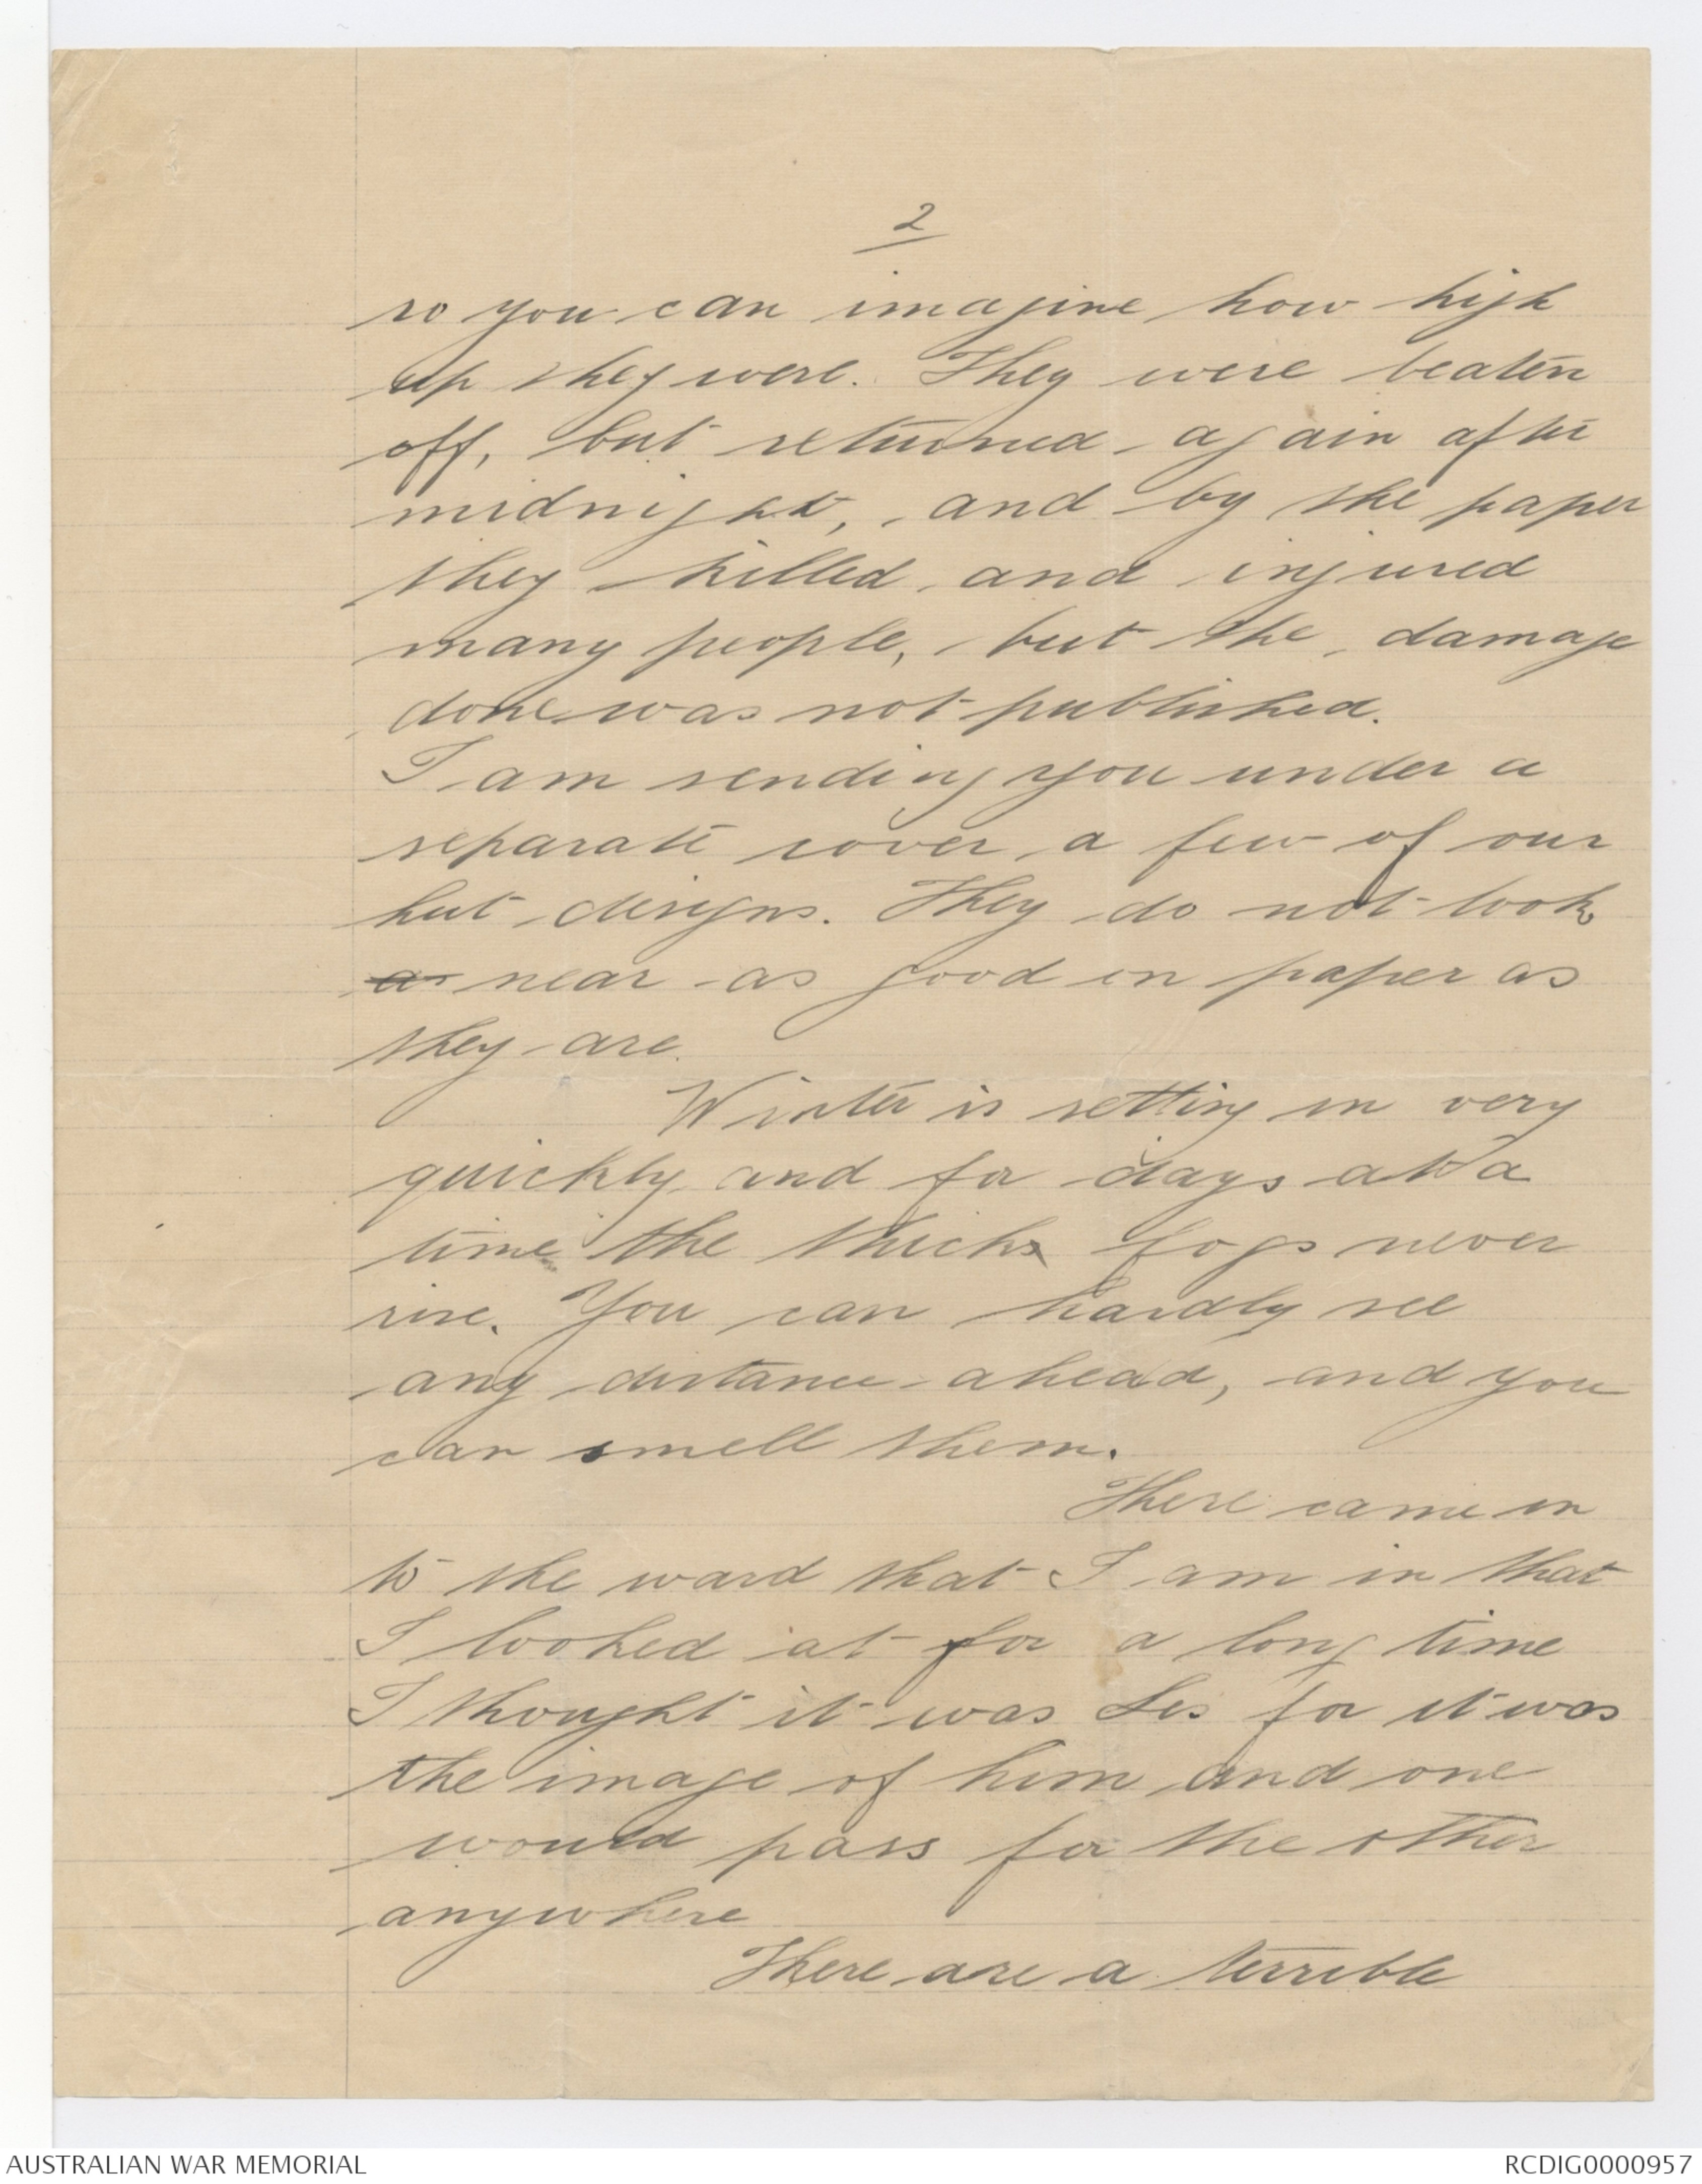 2
so you can imagine how high
up they were. They were beaten
off, but returned again after
midnight, and by the paper
they killed and injured
many people, but the damage
done was not published.
I am sending you under a
separate cover a few of our
hut designs. They do not look
as near as good in paper as
they are.
Winter is setting in very
quickly and for days at a
time the thick fogs never
rise. You can hardly see
any distance ahead, and you
can smell them.
There came in
to the ward that I am in that
I looked at for a long time
I thought it was Les for it was
the image of him and one
would pass for the other
anywhere
There are a terrible
AUSTRALIAN WAR MEMORIAL
RCDIG0000957